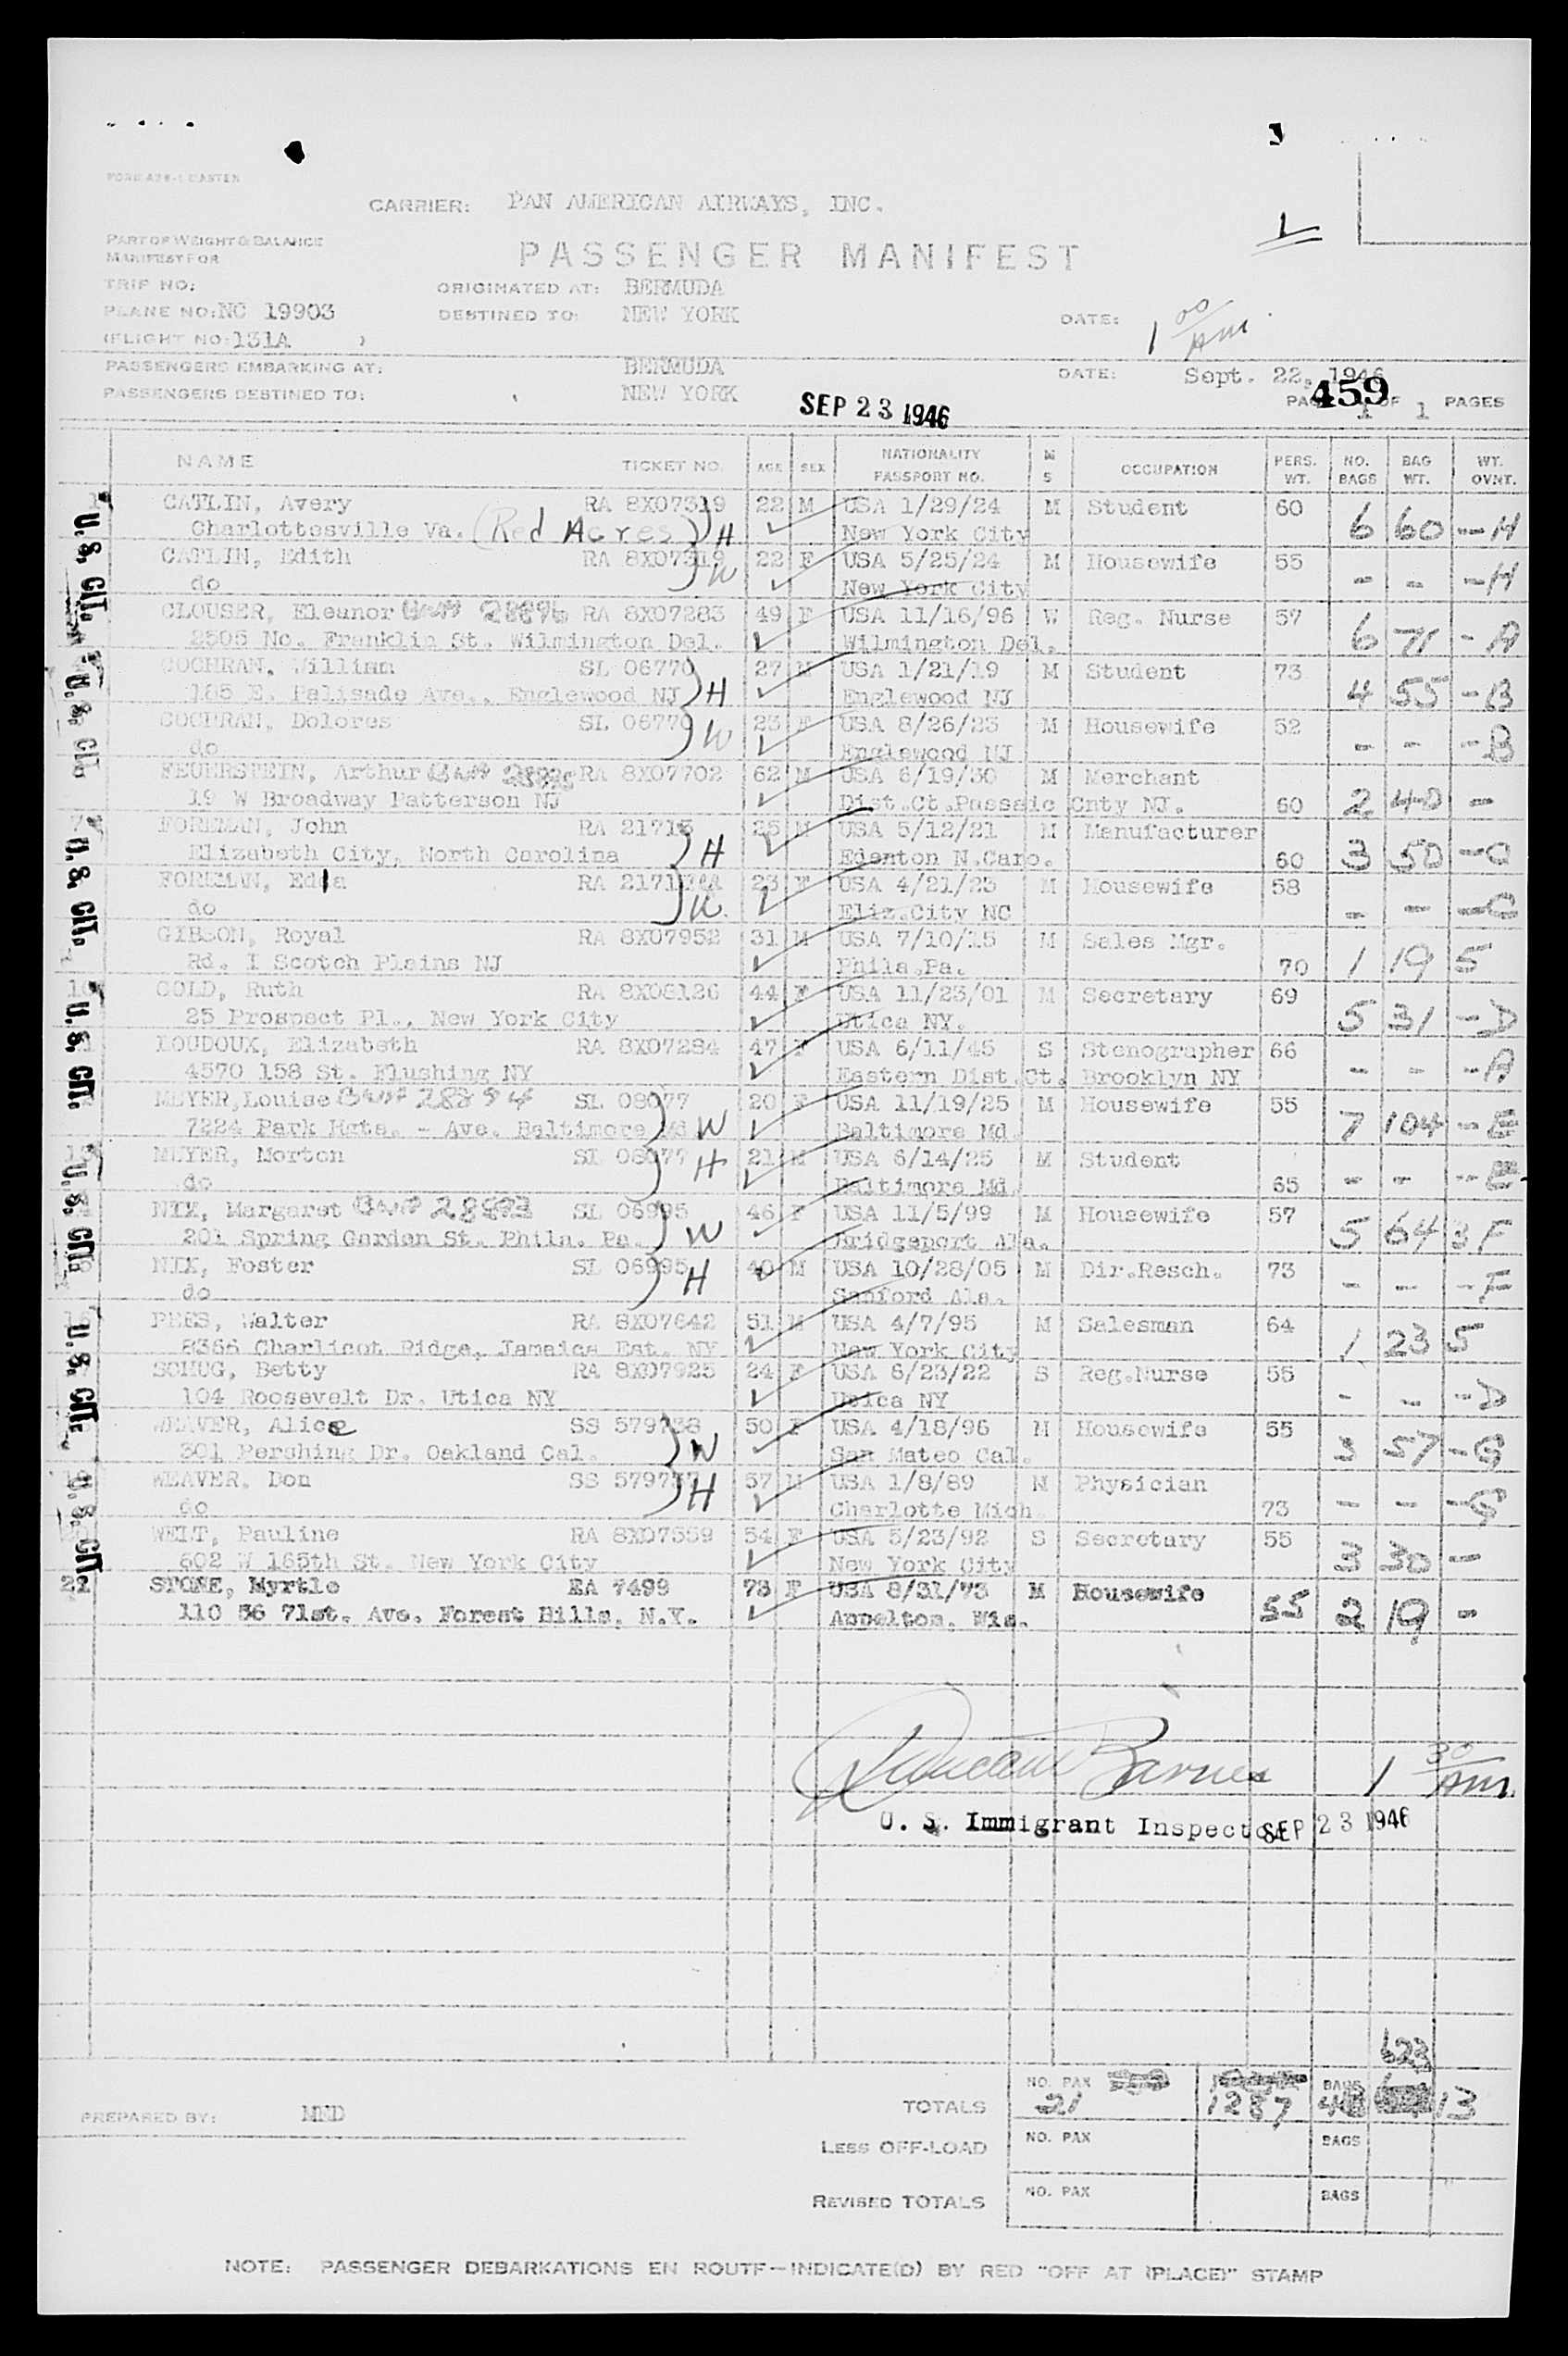 FORM A28-1 MASTER
CARRIER: PAN AMERICAN AIRWAYS, INC.
1
PART OF WEIGHT & BALANCE
MANIFEST FOR
PASSENGER MANIFEST
TRIP NO: ORIGINATED AT: BERMUDA
PLANE NO: NC 19903 DESTINED TO: NEW YORK DATE: 1 00 AM.
(FLIGHT NO: 131A )
PASSENGERS EMBARKING AT: BERMUDA DATE: Sept. 22, 1946
PASSENGERS DESTINED TO: NEW YORK SEP 23 1946 459 PAGE 1 OF 1 PAGES
NAME TICKET NO. AGE SEX NATIONALITY PASSPORT NO. M S OCCUPATION PERS. WT. NO. BAGS BAG WT. WT. OVNT.
1 CATLIN, Avery RA 8X07319 22 M USA 1/29/24 M Student 60 6 60 - H
Charlottesville Va. (Red Acres) H New York City
CATLIN, Edith RA 8X07319 22 F USA 5/25/24 M Housewife 55 - - - H
do W New York City
CLOUSER, Eleanor 28896 RA 8X07283 49 F USA 11/16/96 W Reg. Nurse 57 6 71 - A
2505 No. Franklin St. Wilmington Del. Wilmington Del.
COCHRAN, William SL 06770 27 M USA 1/21/19 M Student 73 4 55 - B
185 E. Palisade Ave., Englewood NJ H Englewood NJ
COCHRAN, Dolores SL 06770 23 F USA 8/26/23 M Housewife 52 - - - B
do W Englewood NJ
FEUERSTEIN, Arthur RA 8X07702 62 M USA 6/19/30 M Merchant
19 W Broadway Patterson NJ Dist.Ct.Passaic Cnty NJ. 60 2 40 -
7 FOREMAN, John RA 21713 25 M USA 5/12/21 M Manufacturer
Elizabeth City, North Carolina H Edenton N.Caro. 60 3 50 - C
FOREMAN, Edla RA 23 F USA 4/21/23 M Housewife 58 - - - C
do W. Eliz.City NC
GIBSON, Royal RA 8X07952 31 M USA 7/10/15 M Sales Mgr.
Rd. I Scotch Plains NJ Phila.Pa. 70 1 19 5
10 GOLD, Ruth RA 8X08126 44 F USA 11/23/01 M Secretary 69 5 31 - D
25 Prospect Pl., New York City Utica NY.
LOUDOUX, Elizabeth RA 8X07284 47 F USA 6/11/45 S Stenographer 66 - - - A
4570 158 St. Flushing NY Eastern Dist.Ct. Brooklyn NY
MEYER, Louise 28894 SL 08077 20 F USA 11/19/25 M Housewife 55 7 104 - E
7224 Park Hgts. - Ave. Baltimore Md W Baltimore Md.
MEYER, Morton SL 08077 21 M USA 6/14/25 M Student
do H Baltimore Md. 65 - - - E
NIX, Margaret 28893 SL 06995 46 F USA 11/5/99 M Housewife 57 5 64 3 F
201 Spring Garden St. Phila. Pa. W Bridgeport Ala.
NIX, Foster SL 06995 40 M USA 10/28/05 M Dir.Resch. 73 - - - F
do H Sanford Ala.
PEES, Walter RA 8X07642 51 M USA 4/7/95 M Salesman 64 1 23 5
8366 Charlicot Ridge, Jamaica Est. NY New York City
SCHUG, Betty RA 8X07925 24 F USA 6/23/22 S Reg.Nurse 55 - - - D
104 Roosevelt Dr. Utica NY Utica NY
WEAVER, Alice SS 579738 50 F USA 4/18/96 M Housewife 55 3 57 - G
301 Pershing Dr. Oakland Cal. W San Mateo Cal.
WEAVER, Don SS 579737 57 M USA 1/8/89 M Physician
do H Charlotte Mich. 73 - - - G
WELT, Pauline RA 8X07559 54 F USA 5/23/92 S Secretary 55 3 30 -
602 W 165th St. New York City New York City
21 STONE, Myrtle EA 7499 73 F USA 8/31/73 M Housewife
110 56 71st. Ave. Forest Hills, N.Y. Appelton, Wis. 55 2 19 -
U.S. CIT.
U.S. CIT.
U.S. CIT.
U.S. CIT.
U.S. CIT.
U.S. CIT.
U.S. CIT.
Duncan Barnes 1 30 AM.
U. S. Immigrant Inspector SEP 23 1946
623
TOTALS NO. PAX 21 1287 BAGS 48 13
PREPARED BY: MED
LESS OFF-LOAD NO. PAX BAGS
REVISED TOTALS NO. PAX BAGS
NOTE: PASSENGER DEBARKATIONS EN ROUTE-INDICATE(D) BY RED "OFF AT (PLACE)" STAMP